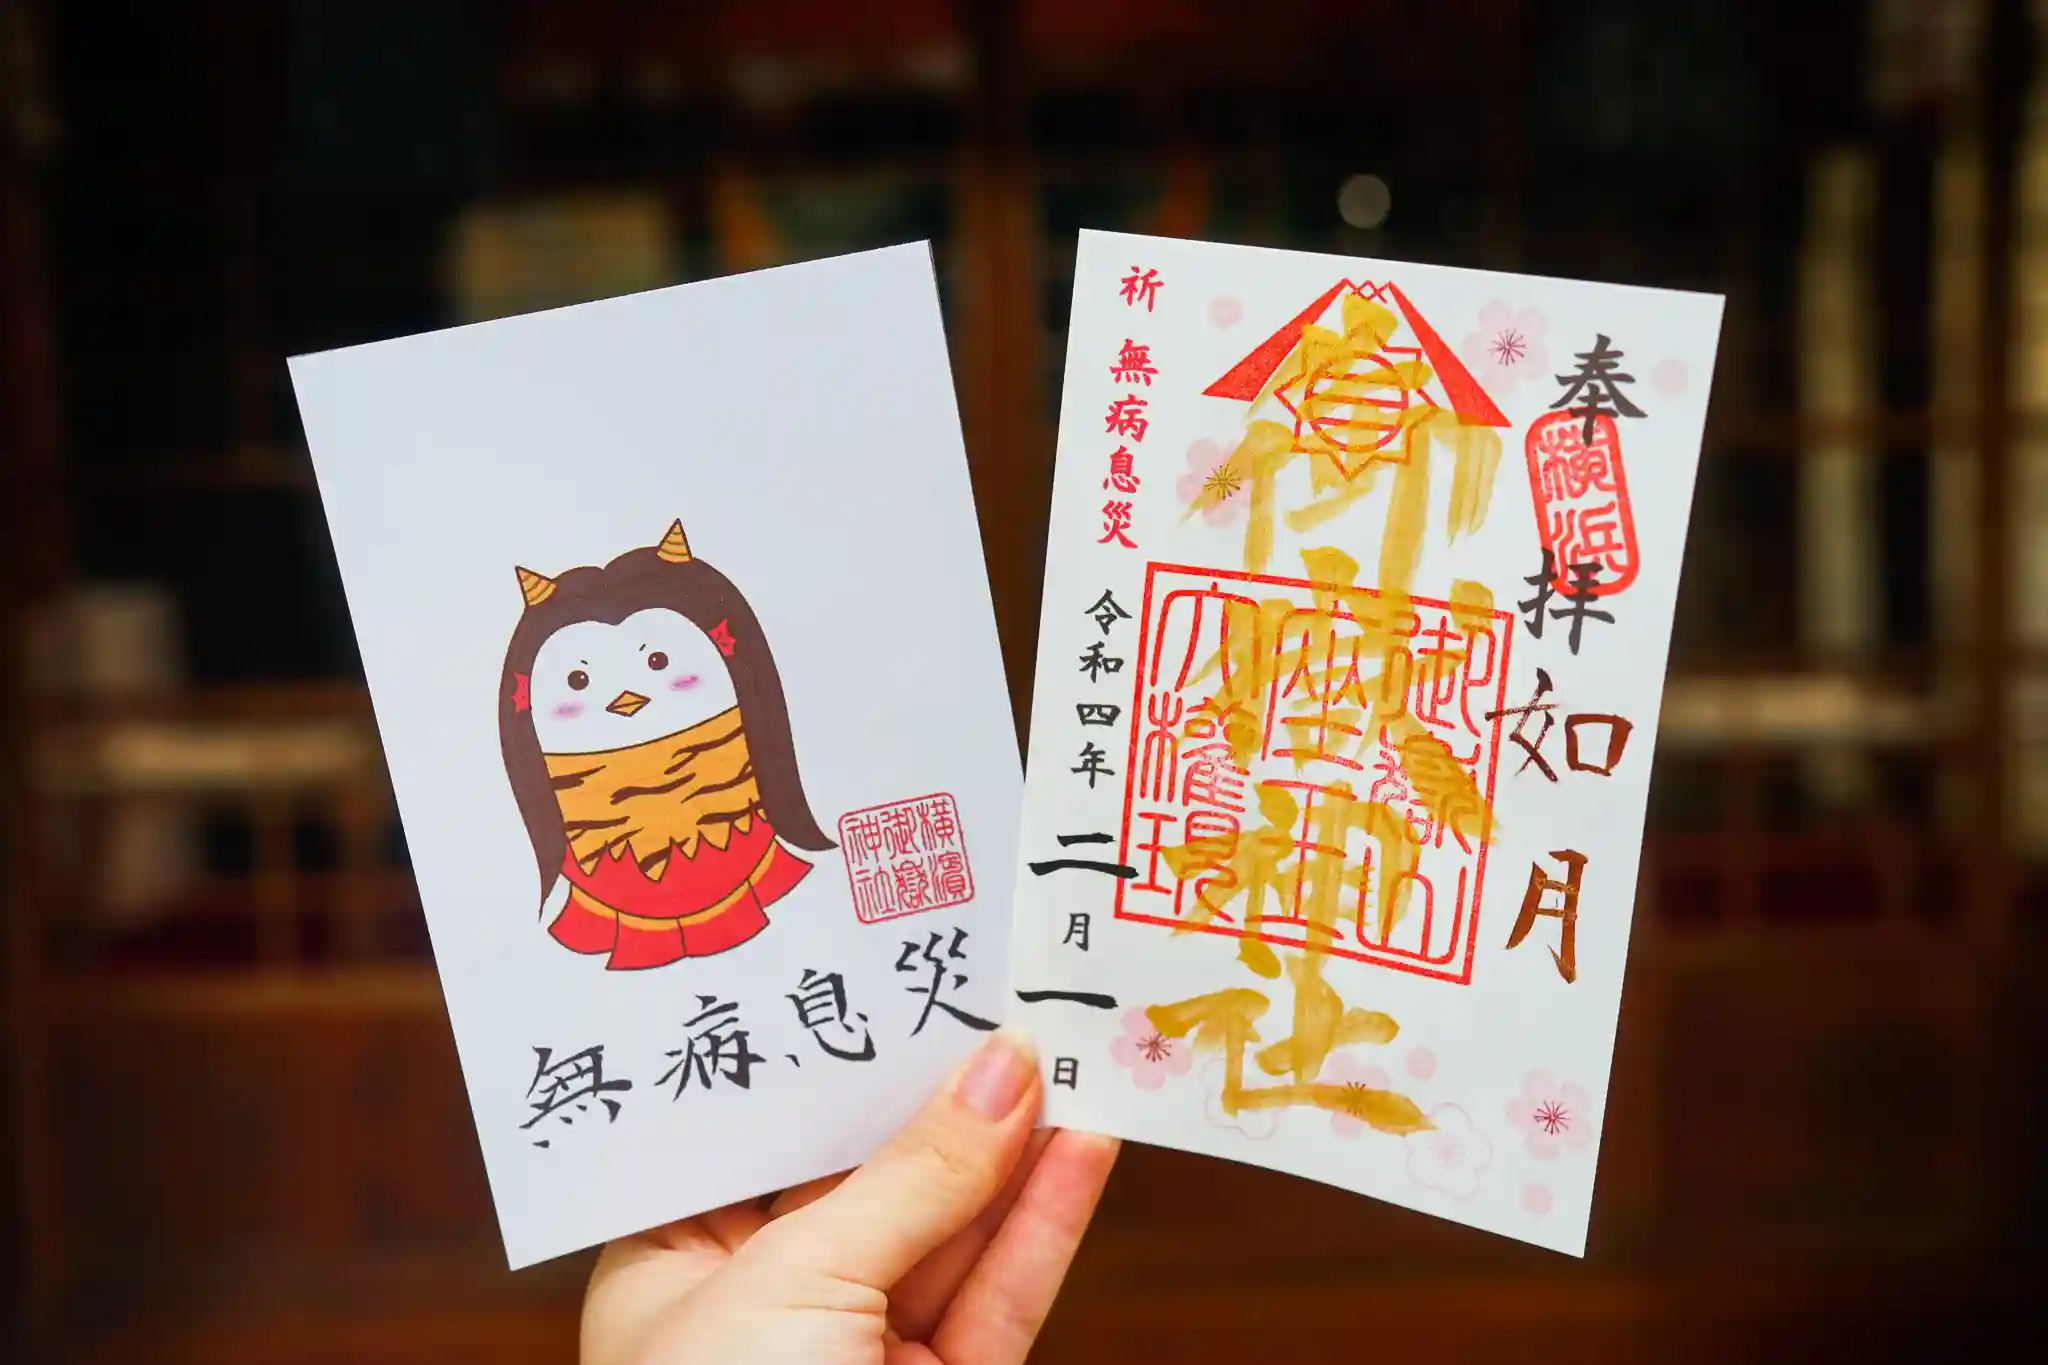 横濱
御嶽
神社
無病息災
奉拝
横浜
如月
御嶽神社
御嶽山
座王
大權現
祈 無病息災
令和四年二月一日